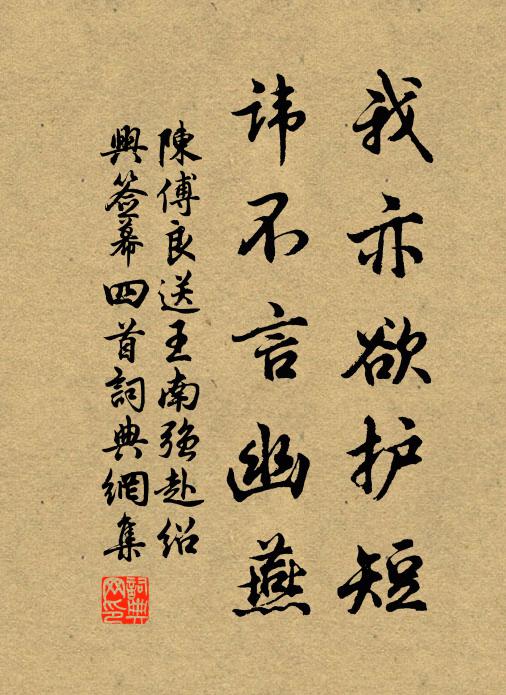 我亦欲护短
讳不言幽燕
陳傅良送王南強赴绍
興簽幕四首詞典網集
詞典網印